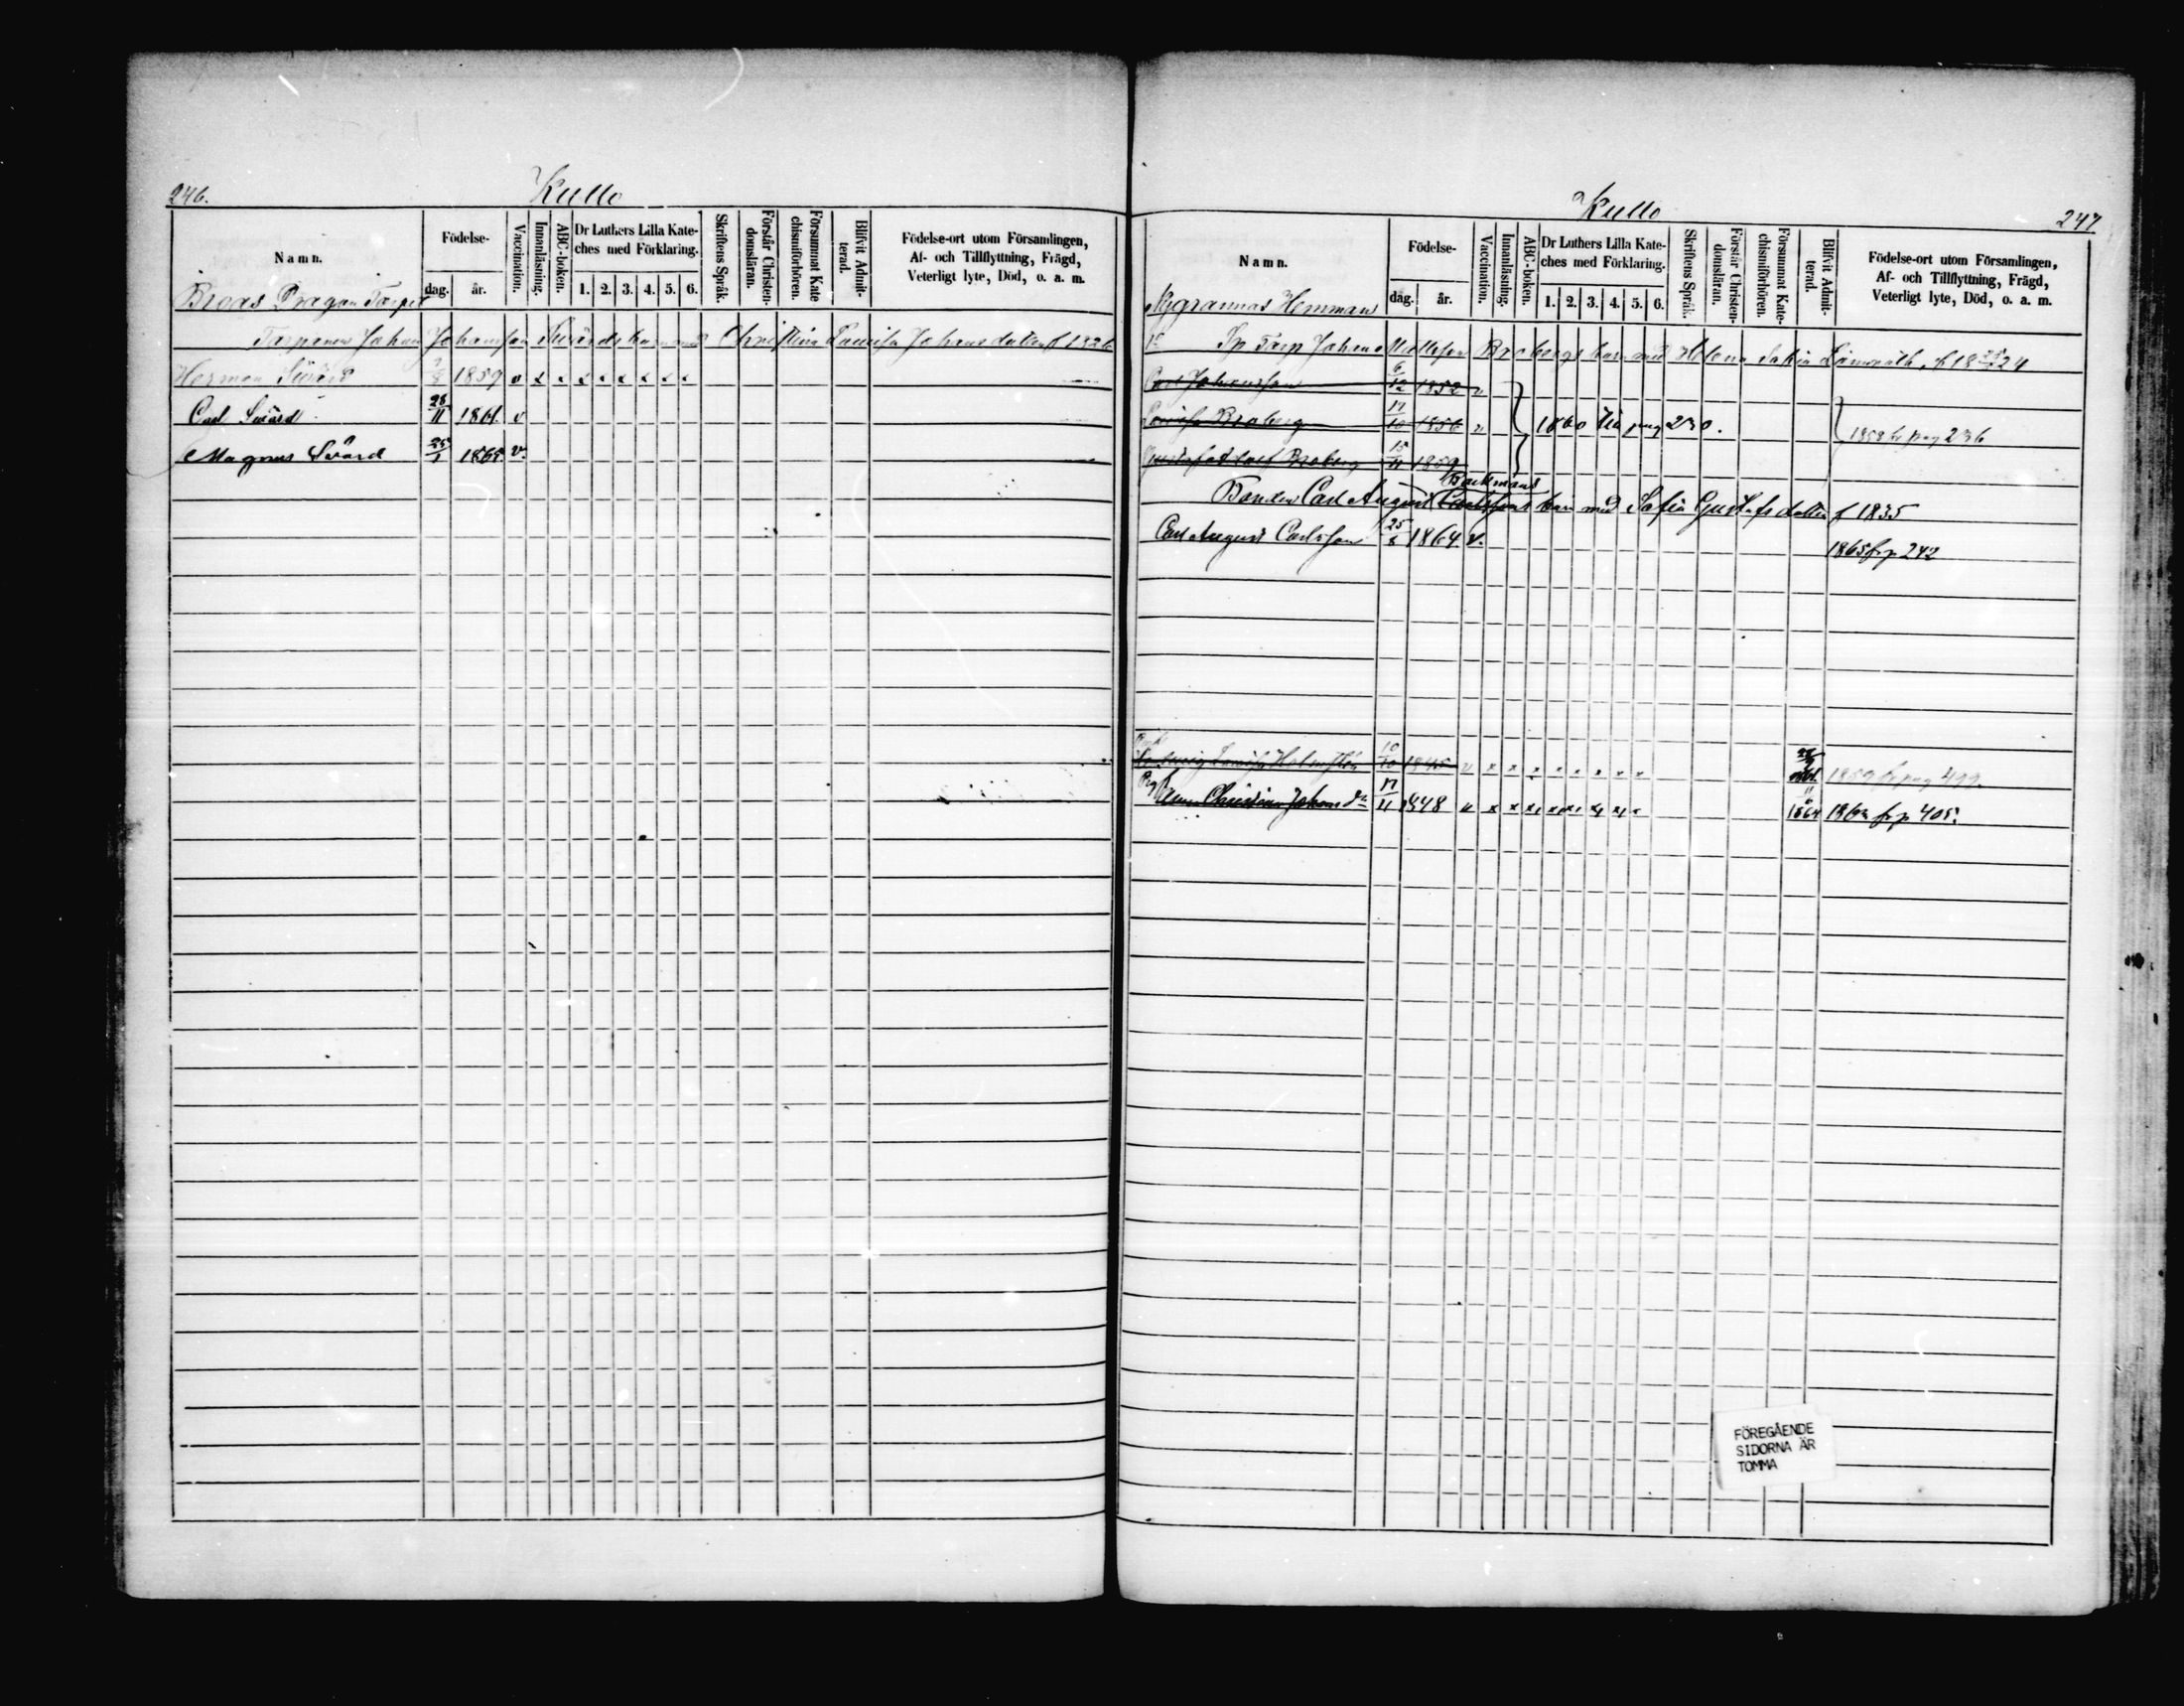 246.
Kullo
Namn.
Födelse-
dag.
år.
Vaccination.
Innanläsning.
ABC-boken.
Dr Luthers Lilla Kate-
ches med Förklaring.
1. 2. 3. 4. 5. 6.
Skriftens Språk.
Förstår Christen-
domsläran.
Försummat Kate
chismiförhören.
Blifvit Admit-
terad.
Födelse-ort utom Församlingen,
Af- och Tillflyttning, Frägd,
Veterligt lyte, Död, o. a. m.
Broas Dragon Torpet
Torparen Johan Johansson Svärds barn med Christina Lovisa Johansdotter f 1826
Herman Svärd 1859 v
Carl Svärd 28/11 1861. v
Magnus Svärd 25/1 1865 v.
Kullo
247
Namn.
Födelse-
dag.
år.
Vaccination.
Innanläsning.
ABC-boken.
Dr Luthers Lilla Kate-
ches med Förklaring.
1. 2. 3. 4. 5. 6.
Skriftens Språk.
Förstår Christen-
domsläran.
Försummat Kate-
chismiförhören.
Blifvit Admit-
terad.
Födelse-ort utom Församlingen,
Af- och Tillflyttning, Frägd,
Veterligt lyte, Död, o. a. m.
Nygrannas Hemman
Torp Johan Mattsson Brobergs barn med Helena Sofia
Carl Johansson 6/12 1852 v
Lovisa Broberg 17/10 1856 v 1860 till pag 230. 1858 fr pag 236
Gustaf Adolf Broberg 15/11 1859
Backmans
Bonden Carl August Carlssons barn med Sofia Gustafsdotter f 1835
Carl August Carlsson 25/8 1864 v.
1865 fr p 242
Hedwig Lovisa Holmsten 10/10 1845 v 1859 fr pag 499.
Pig Anna Christina Johansdr 17/11 1848 v 1864 1863 fr p 405.
FÖREGÅENDE
SIDORNA ÄR
TOMMA